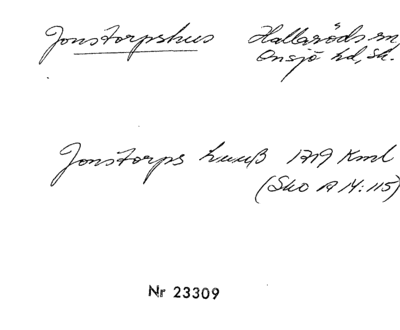 Jonstorpshus Hallaröds sn,
Onsjö hd, Sk.
Jonstorps huuß 1719 Kml
(Sko A M:115)
Nr 23309